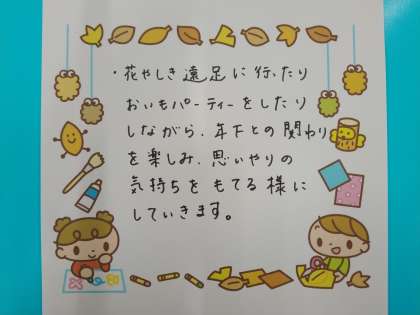 ・花やしき遠足に行ったり
おいもパーティーをしたり
しながら、年下との関わり
を楽しみ、思いやりの
気持ちをもてる様に
していきます。